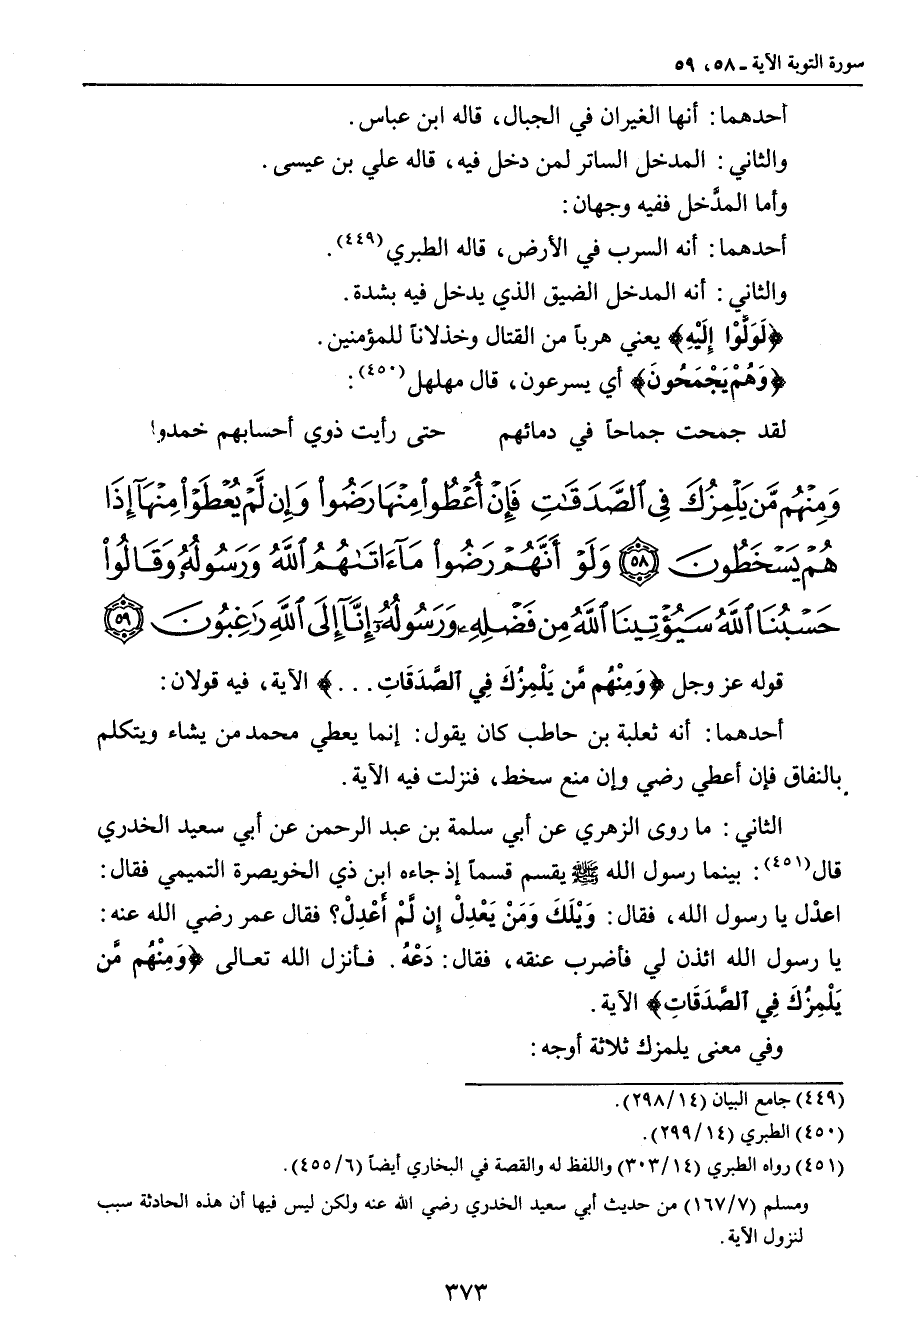 سورة التوبة الآية ـ ٥٨، ٥٩
أحدهما: أنها الغيران في الجبال، قاله ابن عباس.
والثاني: المدخل الساتر لمن دخل فيه، قاله علي بن عيسى.
وأما المدَّخل ففيه وجهان:
أحدهما: أنه السرب في الأرض، قاله الطبري(٤٤٩).
والثاني: أنه المدخل الضيق الذي يدخل فيه بشدة.
﴿لَوَلَّوْا إِلَيْهِ﴾ يعني هرباً من القتال وخذلاناً للمؤمنين.
﴿وَهُمْ يَجْمَحُونَ﴾ أي يسرعون، قال مهلهل(٤٥٠):
لقد جمحت جماحاً في دمائهم حتى رأيت ذوي أحسابهم خمدوا
وَمِنْهُم مَّن يَلْمِزُكَ فِي ٱلصَّدَقَٰتِ فَإِنْ أُعْطُوا۟ مِنْهَا رَضُوا۟ وَإِن لَّمْ يُعْطَوْا۟ مِنْهَآ إِذَا
هُمْ يَسْخَطُونَ ٥٨ وَلَوْ أَنَّهُمْ رَضُوا۟ مَآ ءَاتَىٰهُمُ ٱللَّهُ وَرَسُولُهُۥ وَقَالُوا۟
حَسْبُنَا ٱللَّهُ سَيُؤْتِينَا ٱللَّهُ مِن فَضْلِهِۦ وَرَسُولُهُۥٓ إِنَّآ إِلَى ٱللَّهِ رَٰغِبُونَ ٥٩
قوله عز وجل ﴿وَمِنْهُم مَّن يَلْمِزُكَ فِي ٱلصَّدَقَاتِ...﴾ الآية، فيه قولان:
أحدهما: أنه ثعلبة بن حاطب كان يقول: إنما يعطي محمد من يشاء ويتكلم
بالنفاق فإن أعطي رضي وإن منع سخط، فنزلت فيه الآية.
الثاني: ما روى الزهري عن أبي سلمة بن عبد الرحمن عن أبي سعيد الخدري
قال(٤٥١): بينما رسول الله ﷺ يقسم قسماً إذ جاءه ابن ذي الخويصرة التميمي فقال:
اعدْل يا رسول الله، فقال: وَيْلَكَ وَمَنْ يَعْدِلْ إِن لَّمْ أَعْدِلْ؟ فقال عمر رضي الله عنه:
يا رسول الله ائذن لي فأضرب عنقه، فقال: دَعْهُ. فـأنزل الله تعـالى ﴿وَمِنْهُم مَّن
يَلْمِزُكَ فِي ٱلصَّدَقَاتِ﴾ الآية.
وفي معنى يلمزك ثلاثة أوجه:
(٤٤٩) جامع البيان (٢٩٨/١٤).
(٤٥٠) الطبري (٢٩٩/١٤).
(٤٥١) رواه الطبري (٣٠٣/١٤) واللفظ له والقصة في البخاري أيضاً (٤٥٥/٦).
ومسلم (١٦٧/٧) من حديث أبي سعيد الخدري رضي الله عنه ولكن ليس فيها أن هذه الحادثة سبب
لنزول الآية.
٣٧٣